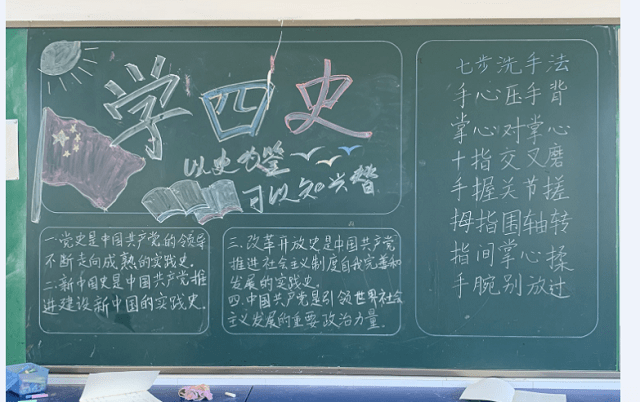 学四史
以史为鉴
可以知兴替
一.党史是中国共产党的领导
不断走向成熟的实践史.
二.新中国史是中国共产党推
进建设新中国的实践史.
三.改革开放史是中国共产党
推进社会主义制度自我完善和
发展的实践史.
四.中国共产党是引领世界社会
主义发展的重要政治力量.
七步洗手法
手心压手背
掌心对掌心
十指交叉磨
手握关节搓
拇指围轴转
指间掌心揉
手腕别放过